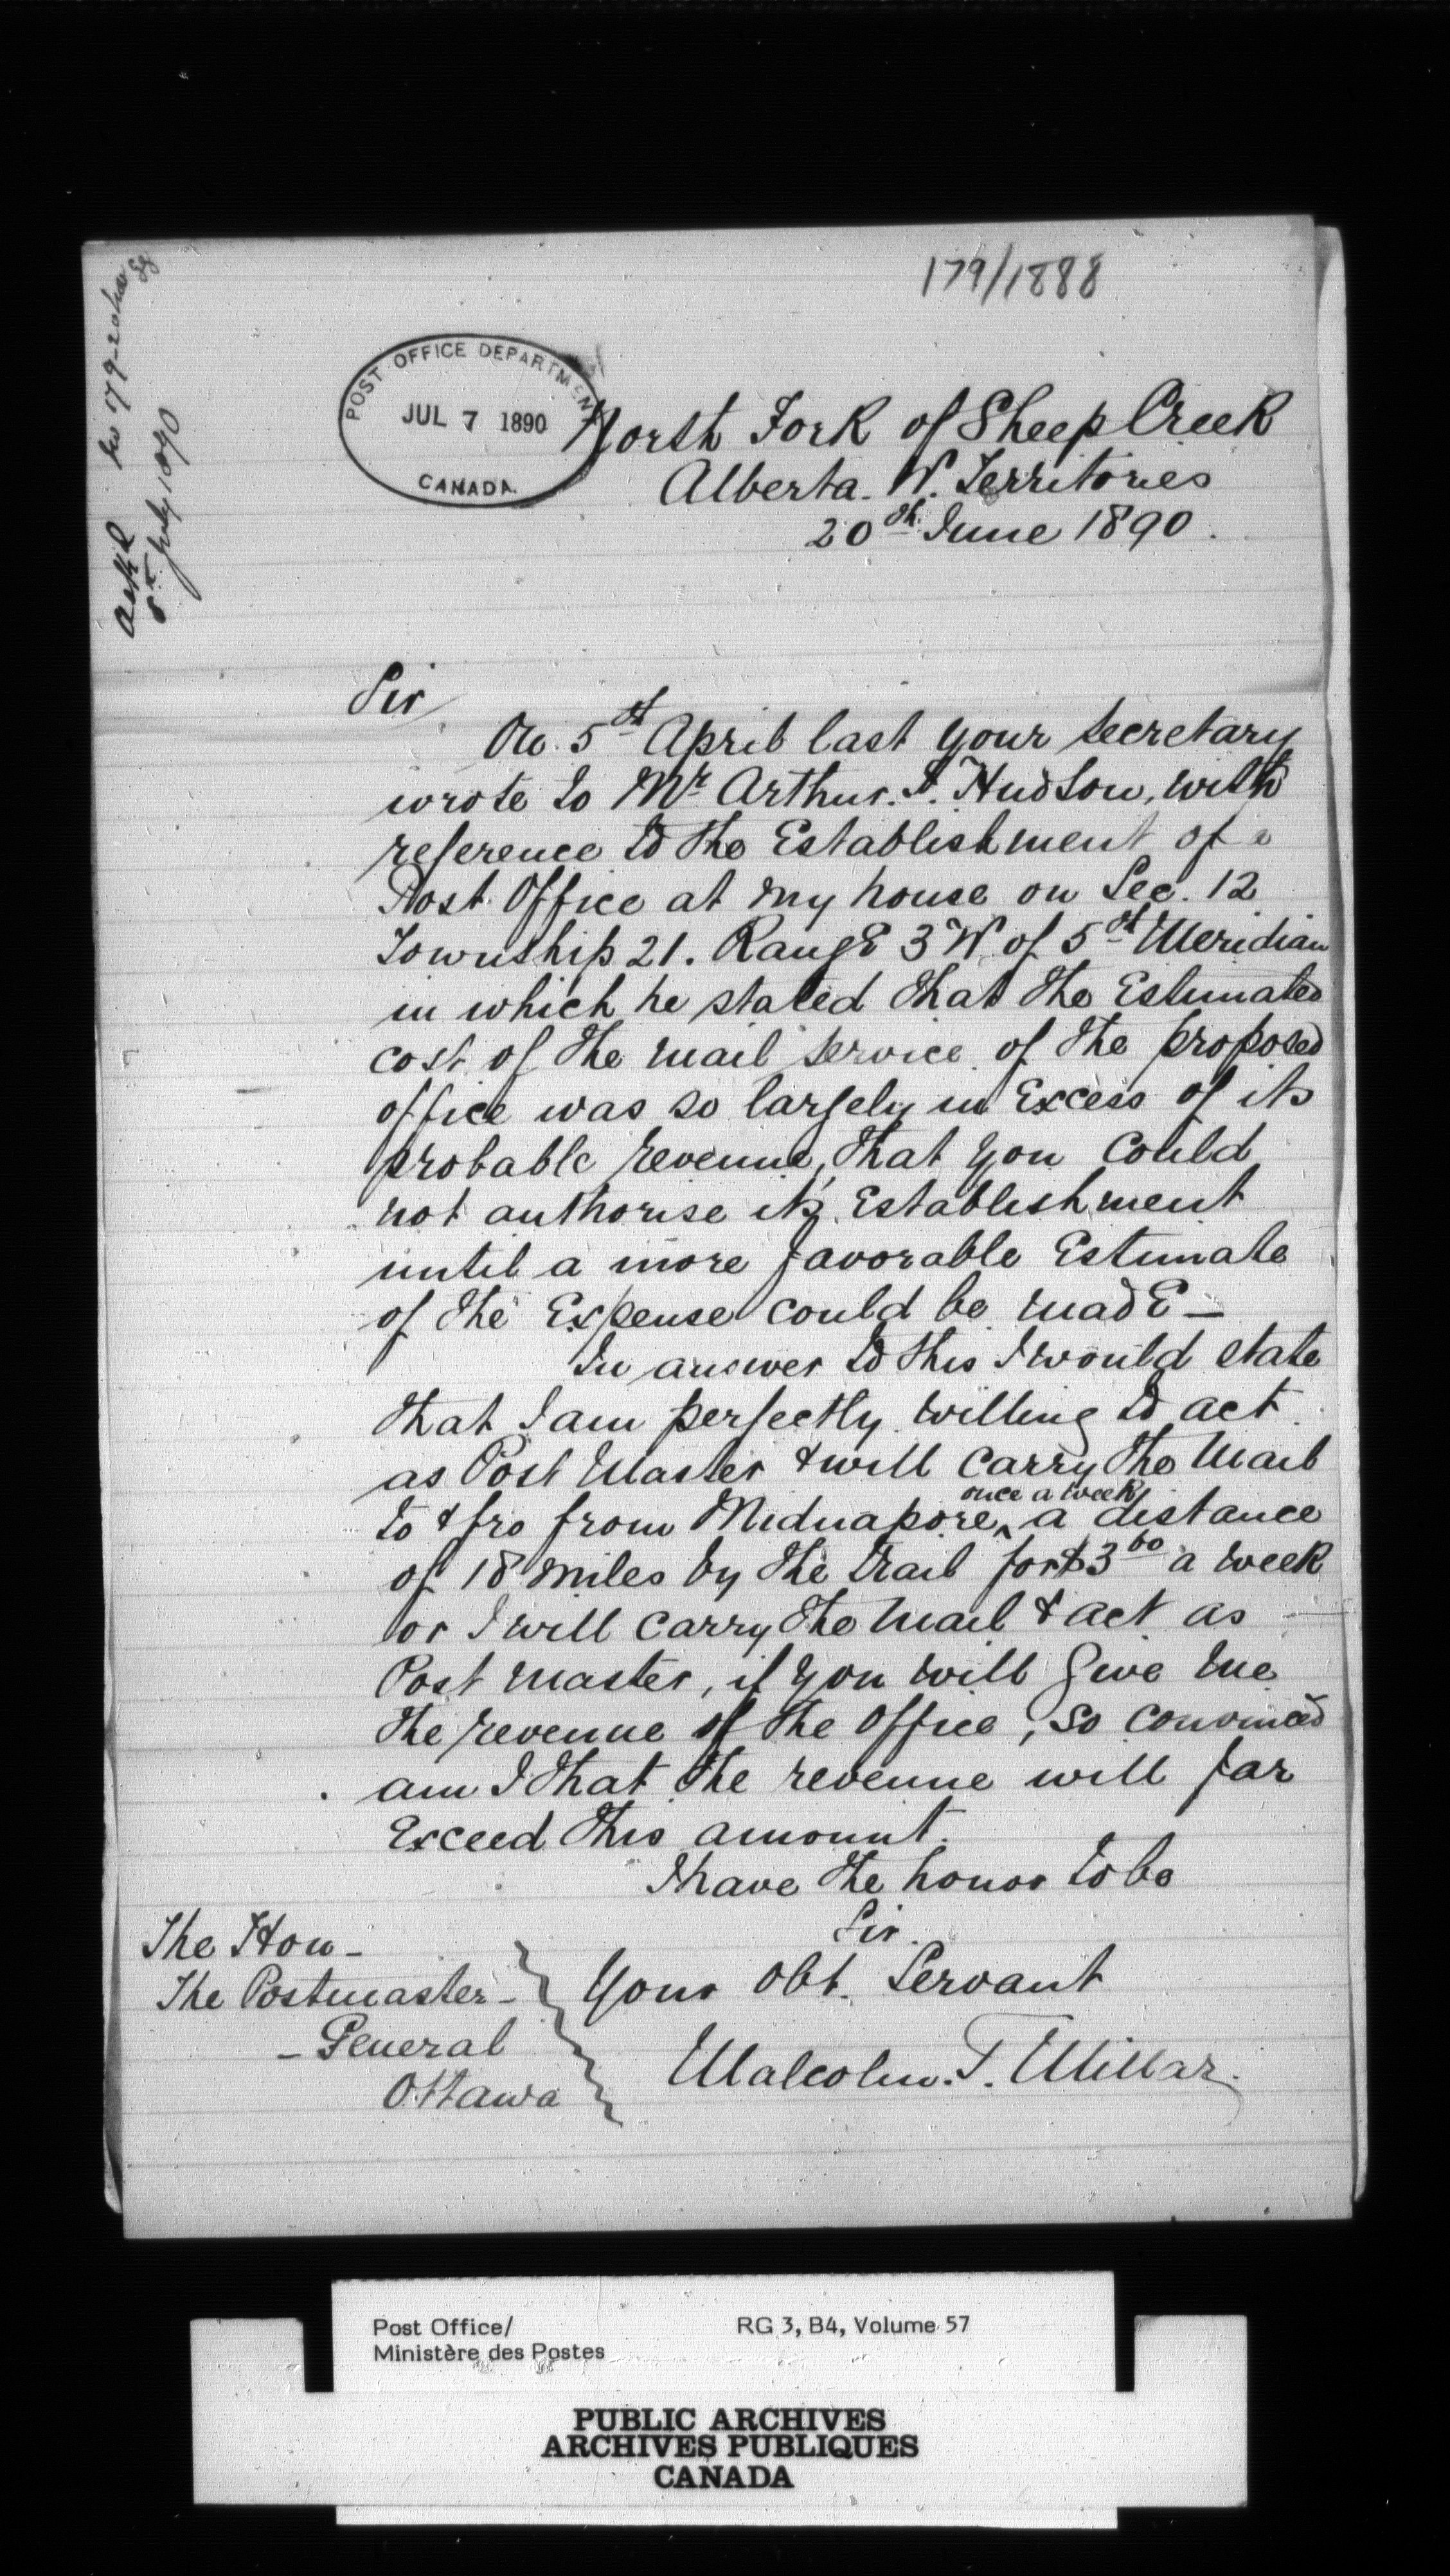 179/1888
POST OFFICE DEPARTMENT
JUL 7 1890
CANADA
Ack'd
8th July 1890
North Fork of Sheep Creek
Alberta. W. Territories
20th June 1890.
Sir
On 5th April last your Secretary
wrote to Mr Arthur. Hudson, with
reference to the Establishment of a
Post Office at my house on Sec. 12
Township 21. Range 3 W. of 5th Meridian
in which he stated that the Estimated
cost of the mail service of the proposed
office was so largely in Excess of its
probable revenue, that you could
not authorise its Establishment
until a more favorable Estimate
of the Expense could be made —
In answer to this I would state
that I am perfectly willing to act
as Post Master & will carry the Mail
once a week
to & fro from Midnapore, a distance
of 18 miles by the trail for $3 a week
or I will carry the Mail & act as
Post Master, if you will give me
the revenue of the Office, so convinced
am I that the revenue will far
Exceed this amount.
I have the honor to be
Sir.
Your Obt. Servant
Malcolm. T. Millar.
The Hon -
The Postmaster -
- General
Ottawa
Post Office/
Ministère des Postes
RG 3, B4, Volume 57
PUBLIC ARCHIVES
ARCHIVES PUBLIQUES
CANADA